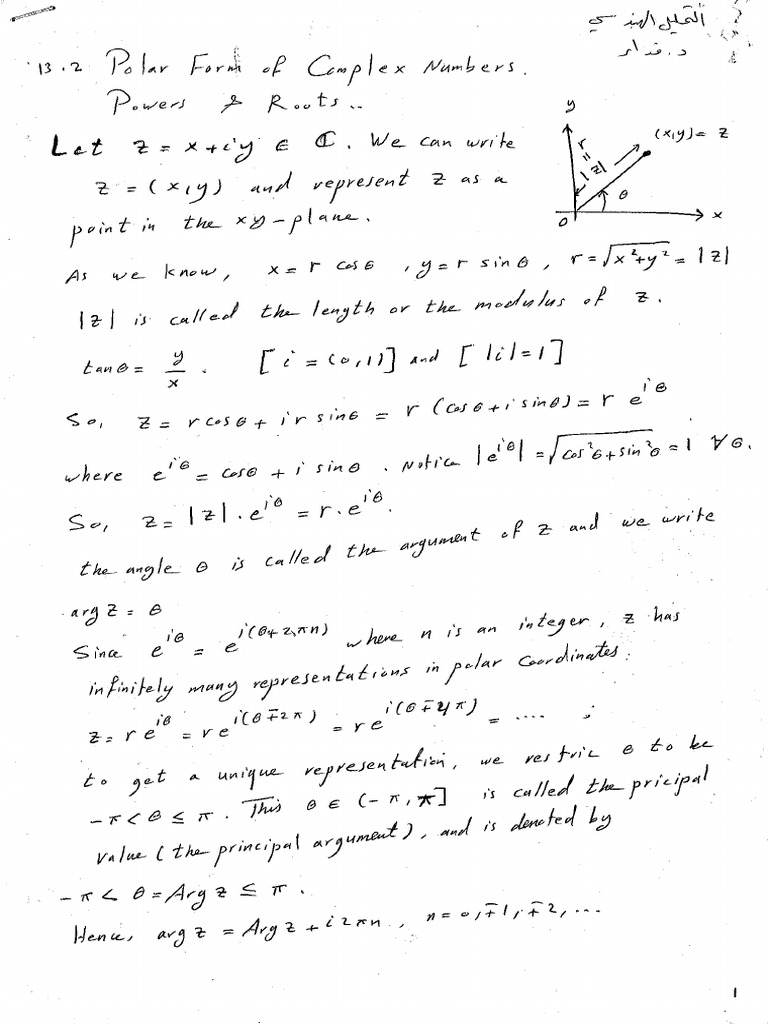 التحليل الهندسي
د. فداء
13.2 Polar Form of Complex Numbers.
Powers & Roots..
Let z = x+iy ∈ ℂ. We can write
z = (x,y) and represent z as a
point in the xy-plane.
y
(x,y) = z
r = |z|
θ
0
x
As we know, x = r cosθ , y = r sinθ , r = √(x²+y²) = |z|
|z| is called the length or the modulus of z.
tanθ = y/x . [i = (0,1)] and [|i| = 1]
So, z = r cosθ + i r sinθ = r (cosθ + i sinθ) = r e^{iθ}
where e^{iθ} = cosθ + i sinθ . Notice |e^{iθ}| = √(cos²θ + sin²θ) = 1 ∀θ.
So, z = |z| . e^{iθ} = r . e^{iθ}.
the angle θ is called the argument of z and we write
arg z = θ
Since e^{iθ} = e^{i(θ+2πn)} where n is an integer, z has
infinitely many representations in polar coordinates:
z = r e^{iθ} = r e^{i(θ∓2π)} = r e^{i(θ∓4π)} = .... ;
to get a unique representation, we restric θ to be
-π < θ ≤ π . This θ ∈ (-π, π] is called the pricipal
value (the principal argument), and is denoted by
-π < θ = Arg z ≤ π .
Hence, arg z = Arg z + i 2πn , n = 0, ∓1, ∓2, ...
1